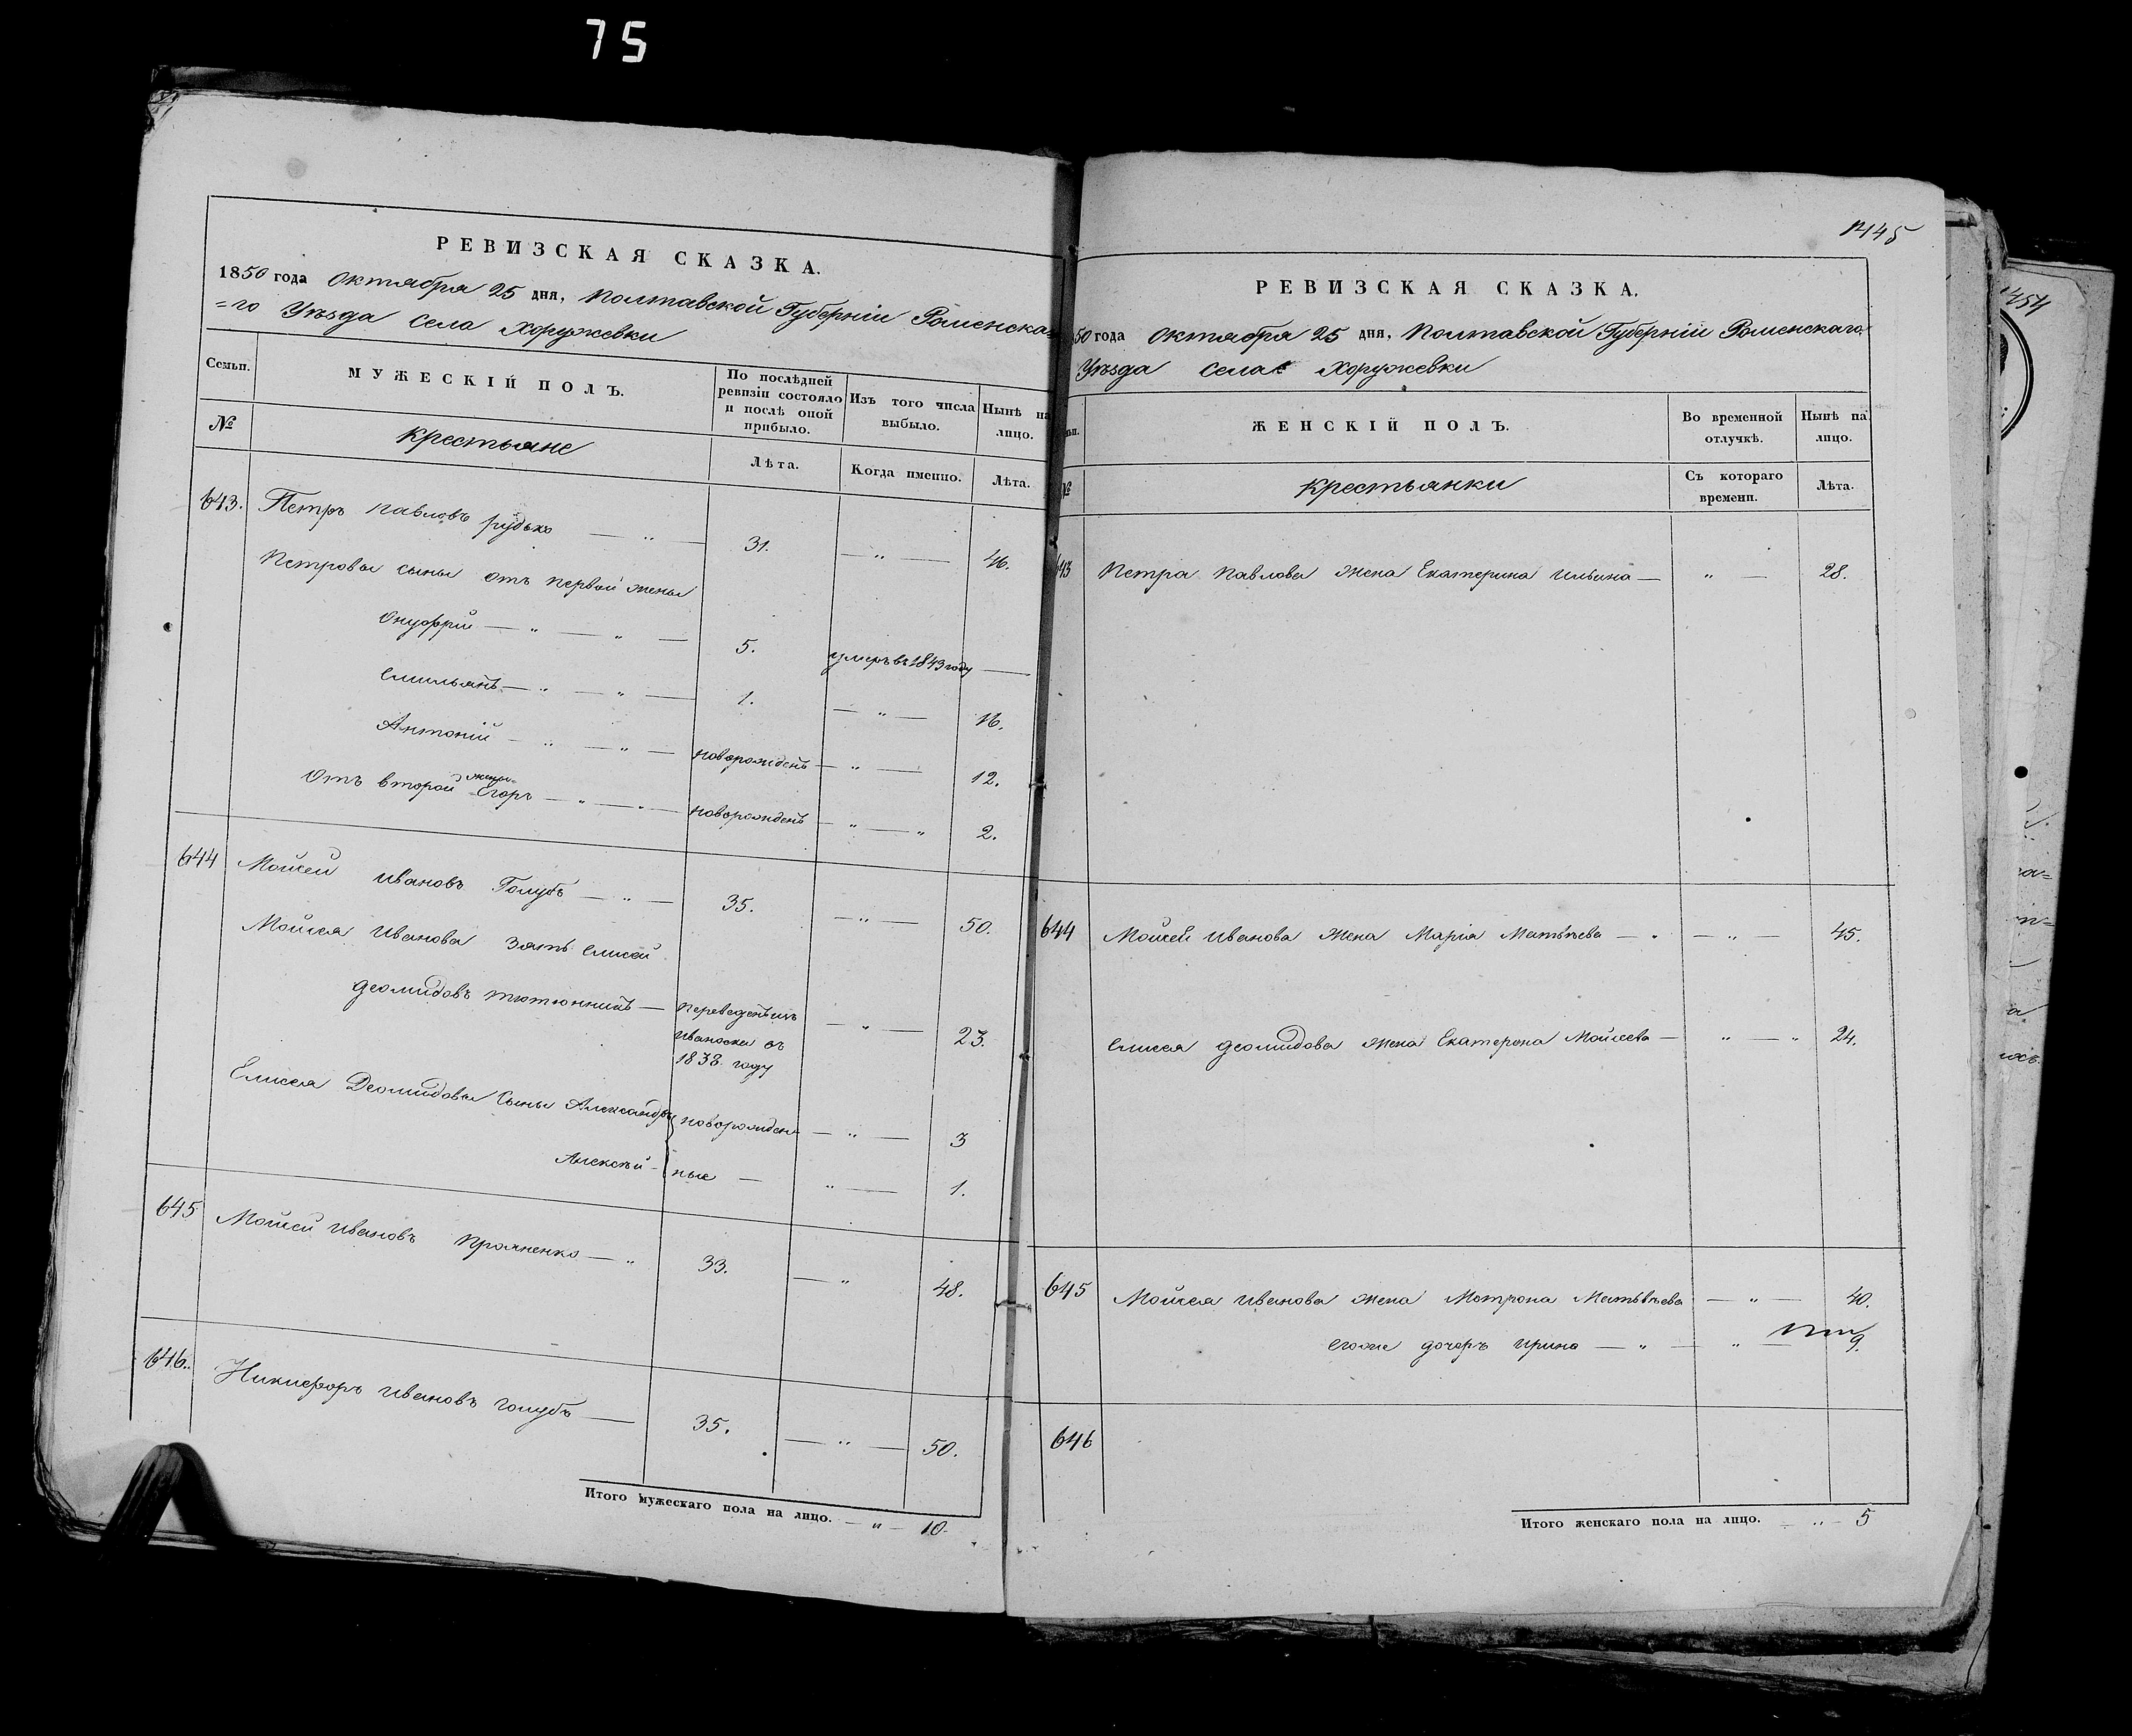 75
РЕВИЗСКАЯ СКАЗКА.
1850 года Октября 25 дня, Полтавской Губерніи Роменска=
=го Уѣзда Села Хоружевки
Семьи.
МУЖЕСКІЙ ПОЛЪ.
По послѣдней ревизіи состояло и послѣ оной прибыло.
Изъ того числа выбыло.
Нынѣ на лицо.
№
Крестьяне
Лѣта.
Когда именно.
Лѣта.
643. Петръ Павловъ Рудько — „ — 31. — „ — 46.
Петровы сыны отъ первой жены
Онуфрій — „ — „ — 5. умеръ въ 1843 году —
Емильянъ — „ — „ — 1. — „ — 16.
Антоній — „ — „ — новорожденъ — „ — 12.
Отъ второй жены Егоръ — „ — „ — новорожденъ — „ — „ 2.
644 Мойсей Ивановъ Голубъ — „ — 35. — „ — 50.
Мойсея Иванова зять Елисей
Деомидовъ Тютюнникъ — переведенъ изъ — „ — 23.
въ
1838 году
Елисея Деомидова Сыны Александръ новорожден — „ — 3
Алексѣй — ные — „ — 1.
645 Мойсей Ивановъ — „ 33. — „ 48.
646. Никифоръ Ивановъ Голубъ — 35. — „ — 50.
Итого мужескаго пола на лицо. — „ — 10.
1445
РЕВИЗСКАЯ СКАЗКА.
50 года Октября 25 дня, Полтавской Губерніи Роменскаго
Уѣзда Села Хоружевки
ЖЕНСКІЙ ПОЛЪ.
Во временной отлучкѣ.
Нынѣ на лицо.
№
Крестьянки
Съ котораго времени.
Лѣта.
643 Петра Павлова жена Екатерина Ильина — „ — 28.
644 Мойсей Иванова жена Марія Матвѣева — „ — „ 45.
Елисея Деомидова жена Екатерина Мойсеева — „ — „ 24.
645 Мойсея Иванова жена Мотрона Матвѣева — „ — 40.
егоже дочерь Ирина — „ — „ — 9.
646
Итого женскаго пола на лицо. — „ — 5